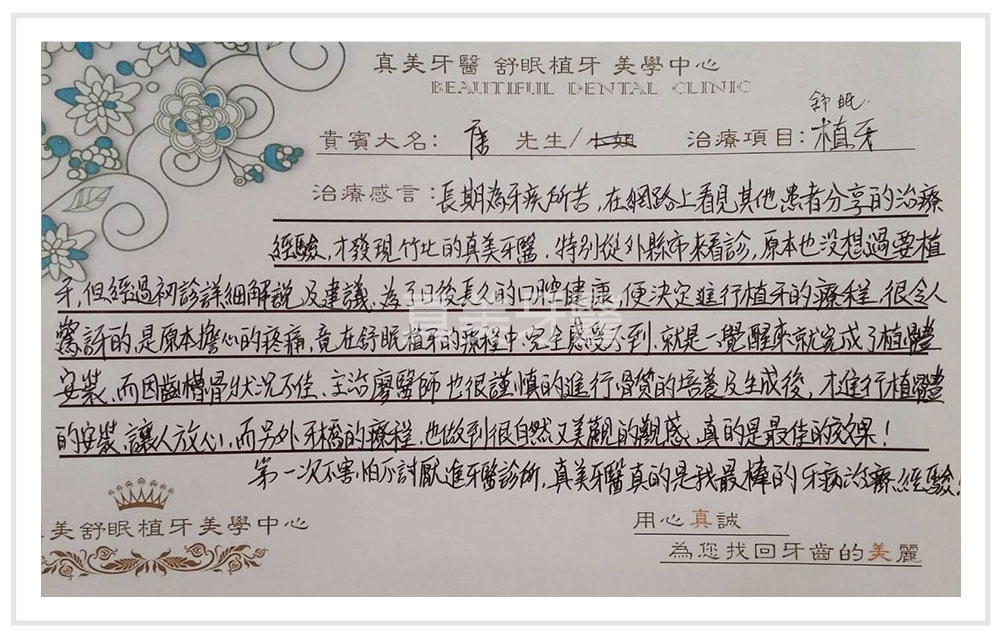 真美牙醫 舒眠植牙 美學中心
BEAUTIFUL DENTAL CLINIC
舒眠
貴賓大名: 先生/小姐 治療項目: 植牙
治療感言: 長期為牙疾所苦，在網路上看見其他患者分享的治療
經驗，才發現竹北的真美牙醫．特別從外縣市來看診，原本也沒想過要植
牙，但經過初診詳細解說及建議，為了日後長久的口腔健康，便決定進行植牙的療程，很令人
驚訝的，是原本擔心的疼痛，竟在舒眠植牙的療程中，完全感受不到，就是一覺醒來就完成了植體
安裝，而因齒槽骨狀況不佳、主治廖醫師也很謹慎的進行骨質的培養及生成後，才進行植體
的安裝，讓人放心，而另外牙橋的療程，也做到很自然又美觀的觀感，真的是最佳的效果！
第一次不害怕不討厭進牙醫診所，真美牙醫真的是我最棒的牙病治療經驗．
美舒眠植牙美學中心
用心真誠
為您找回牙齒的美麗